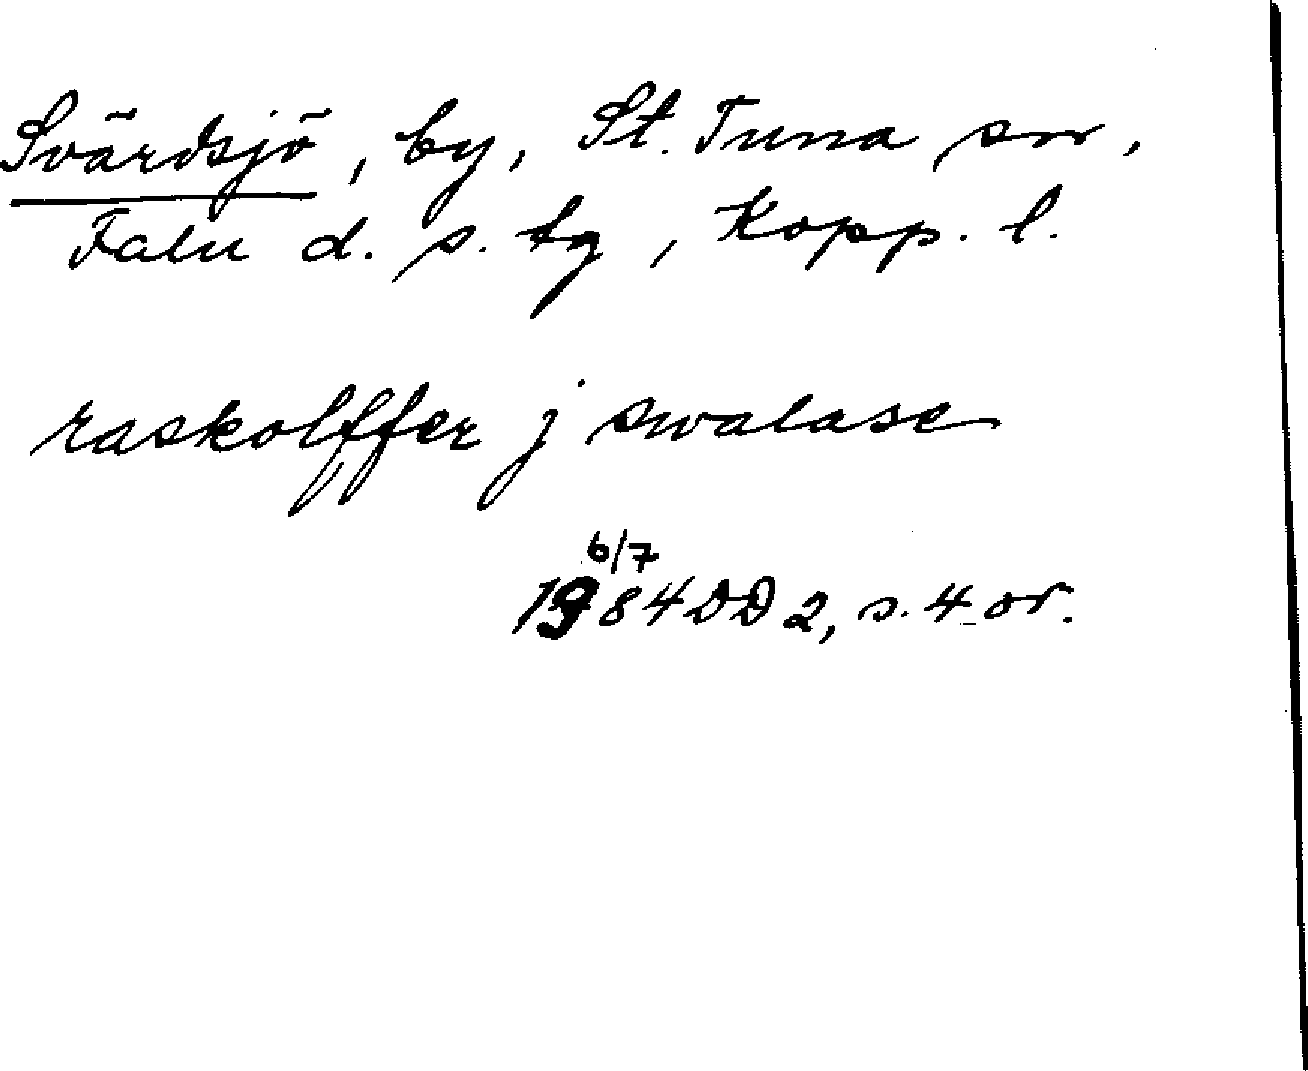 Svärdsjö, by, St. Tuna sn,
Falu d. s. tg, Kopp. l.
raskolffer j swalase
6/7
1984 DD 2, s. 4 or.